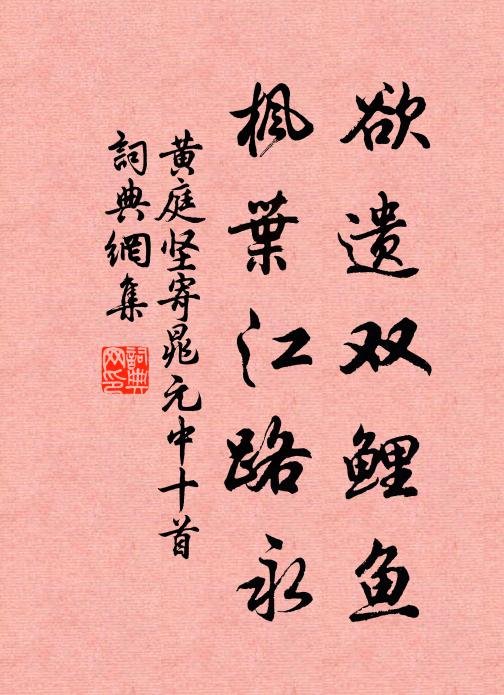 欲遗双鲤鱼
枫葉江路永
黄庭坚寄晁元中十首
詞典網集
詞典網印